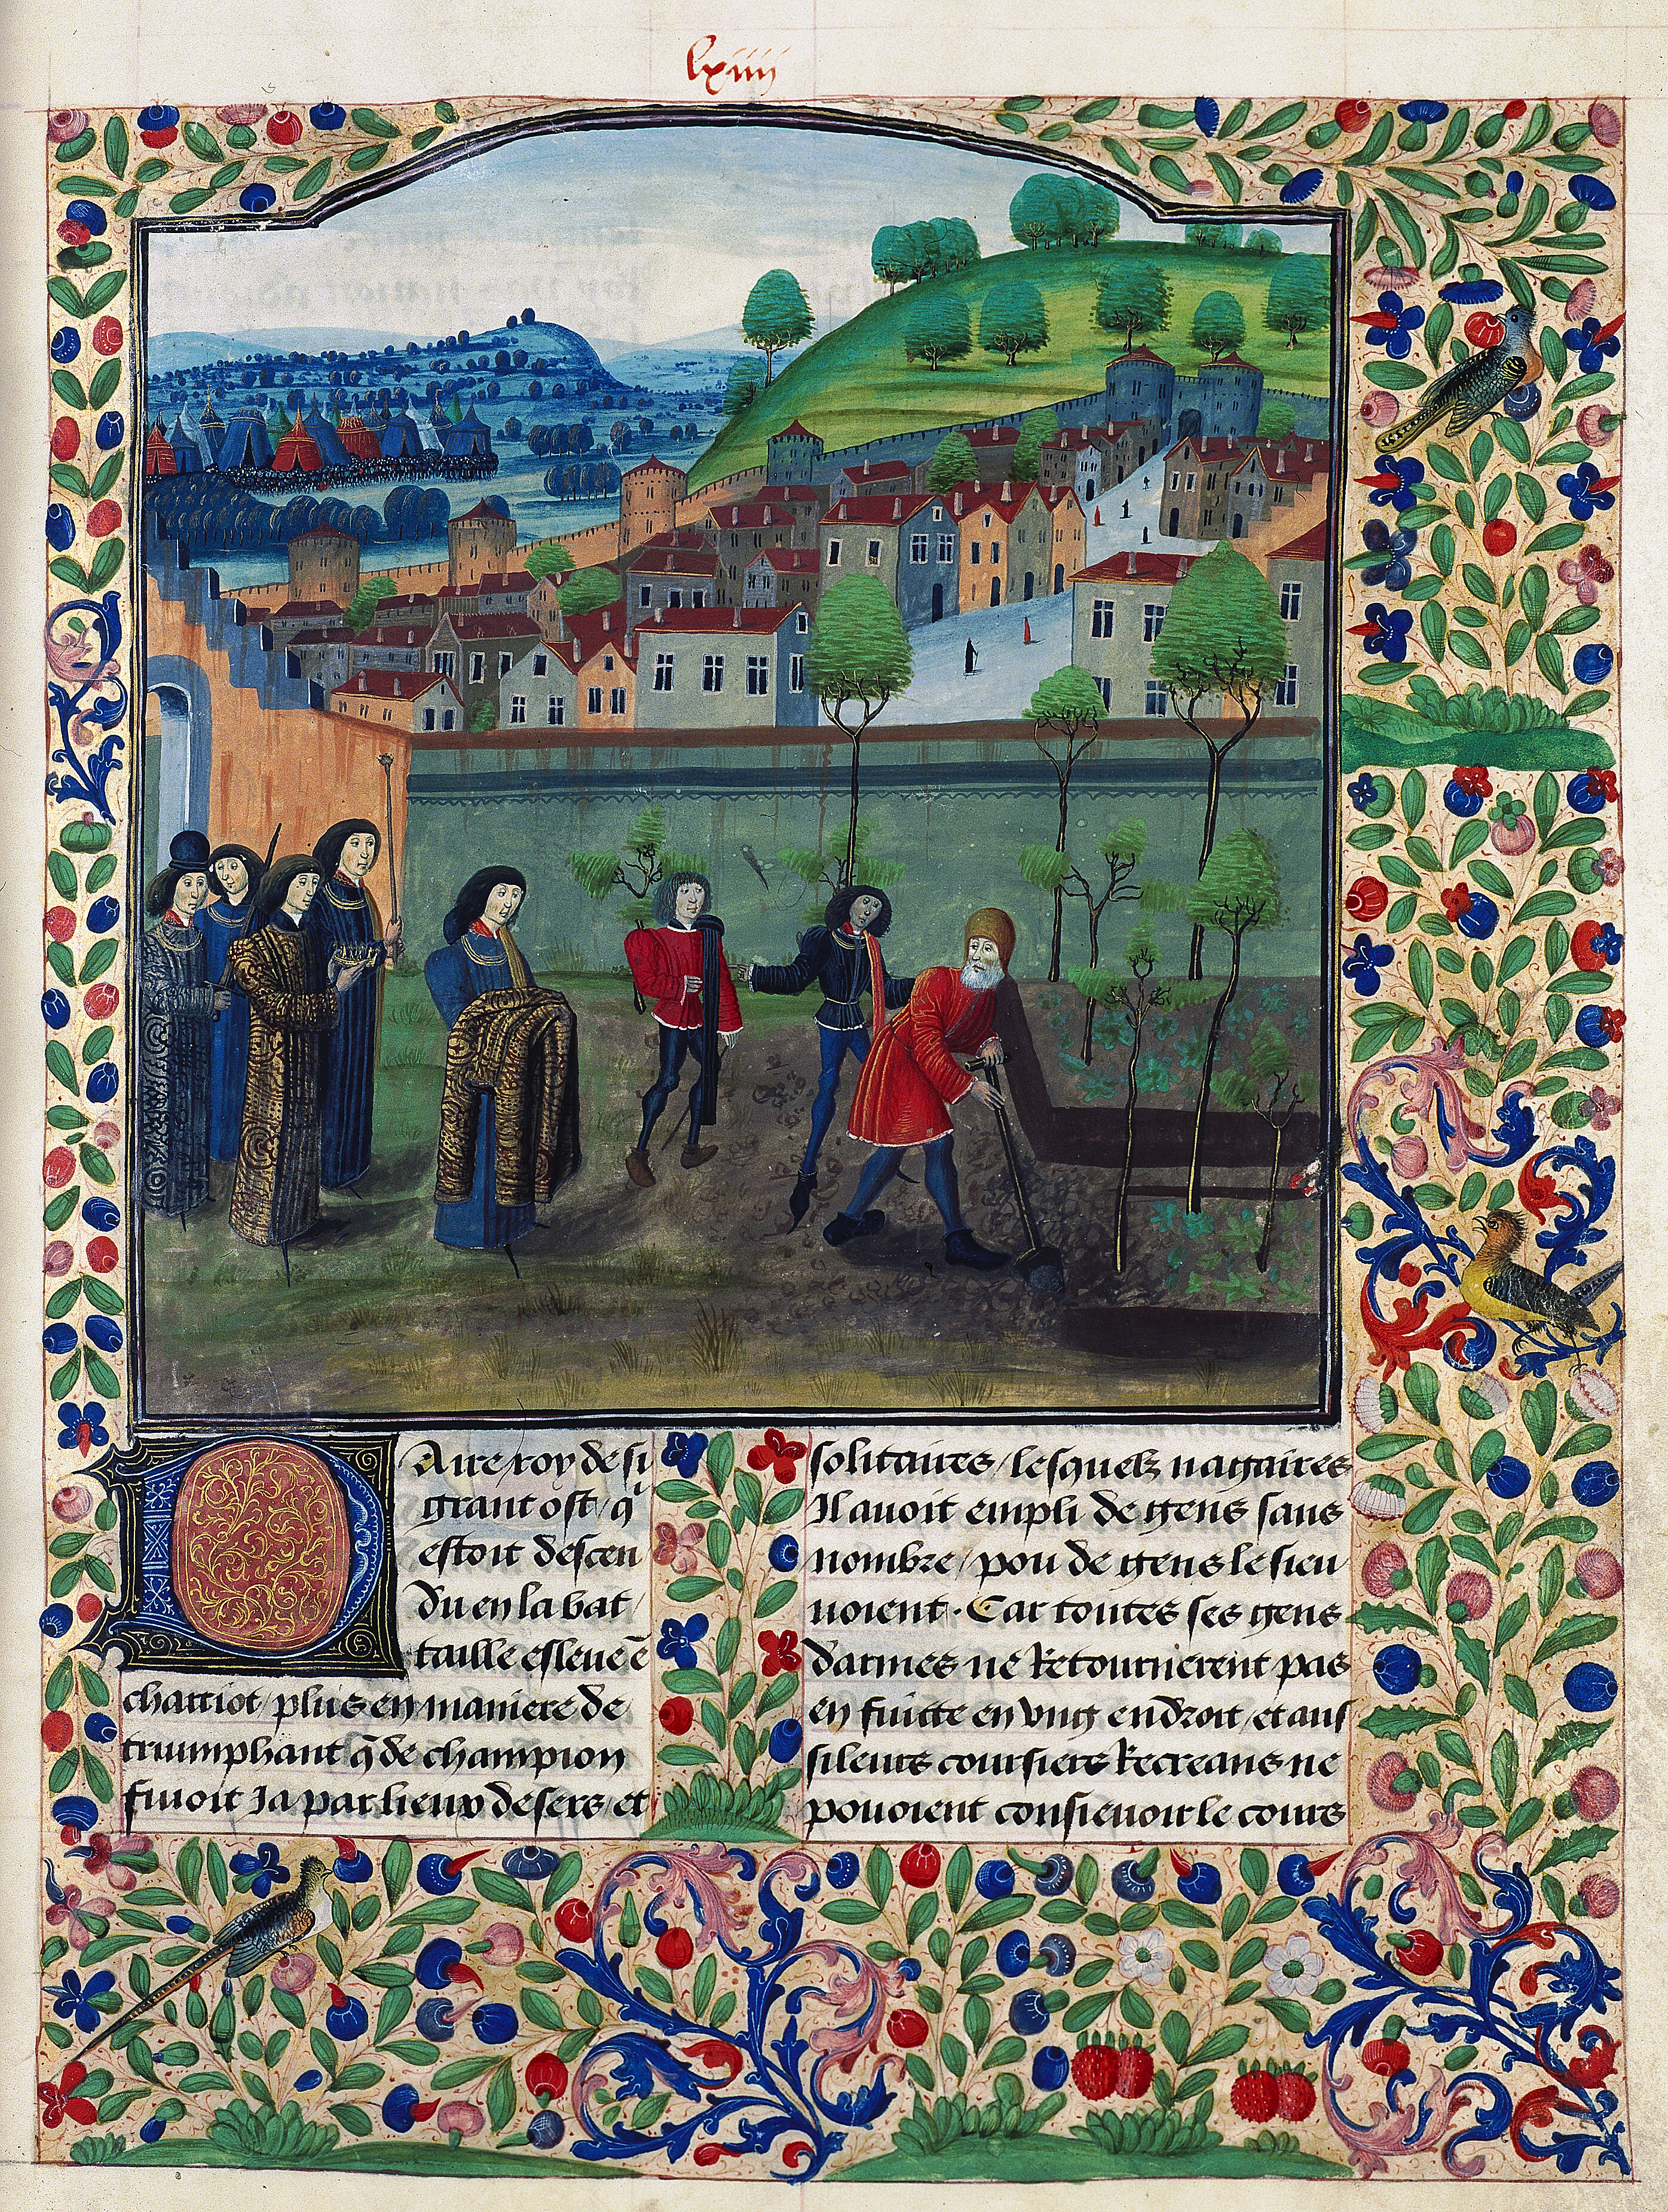 lxiiii
Daire roy de si
grant ost / q̃
estoit descen
du en la bat /
taille esleue ẽ
charriot / plus en maniere de
triumphant q̃ de champion
fuioit Ja par lieux desers / et
solitaires / lesquelz nagaires
Il auoit empli de gens sans
nombre / pou de gens le sieu
uoient. Car toutes ses gens
darmes ne Retournerent pas
en fuitte en vng endroit / et aus
si leurs coursiers Recreans ne
pouoient consieuoir le cours